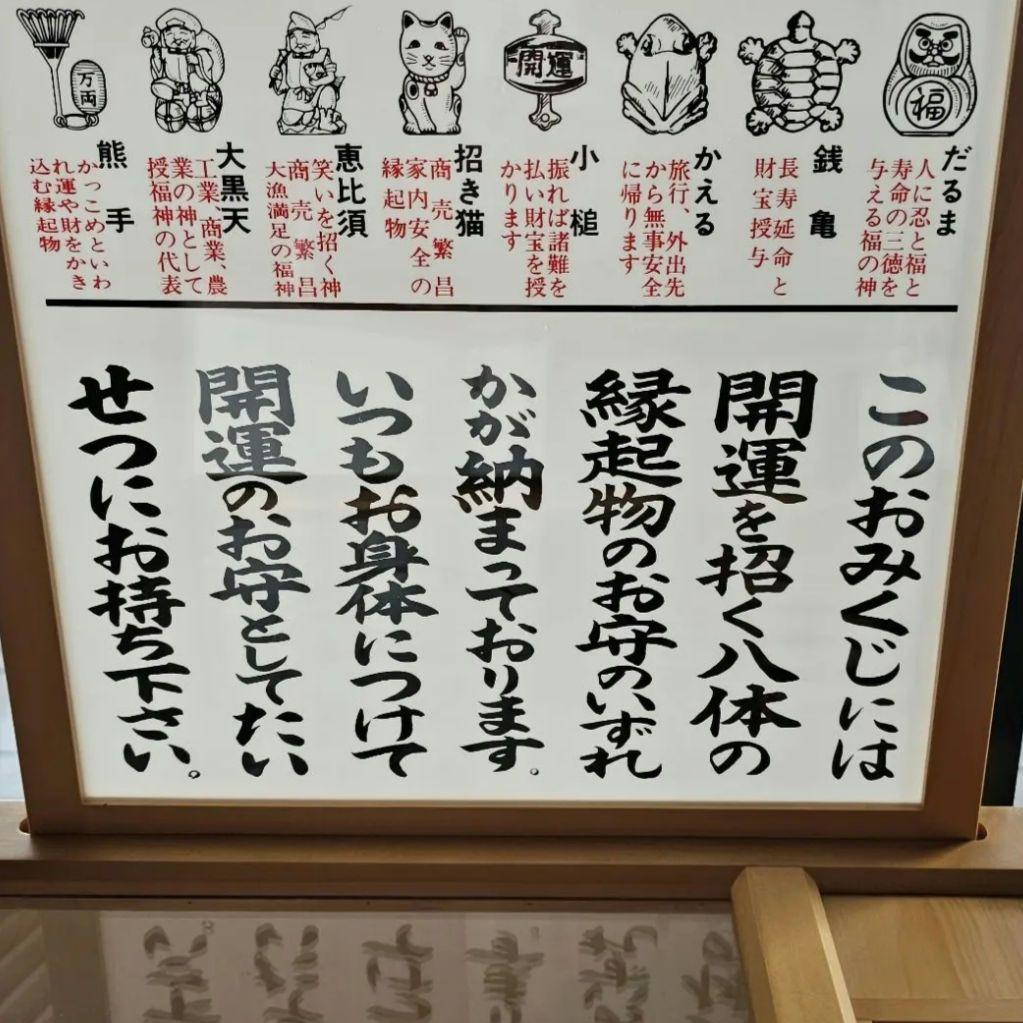 だるま
人に忍と福と
寿命の三徳を
与える福の神
銭亀
長寿延命と
財宝授与
かえる
旅行、外出先
から無事安全
に帰ります
小槌
振れば諸難を
払い財宝を授
かります
招き猫
商売繁昌
家内安全の
縁起物
恵比須
笑いを招く神
商売繁昌
大漁満足の福神
大黒天
工業、商業、農
業の神として
授福神の代表
熊手
かっこめといわ
れ運や財をかき
込む縁起物
福
開運
万両
このおみくじには
開運を招く八体の
縁起物のお守のいずれ
かが納まっております。
いつもお身体につけて
開運のお守としてたい
せつにお持ち下さい。